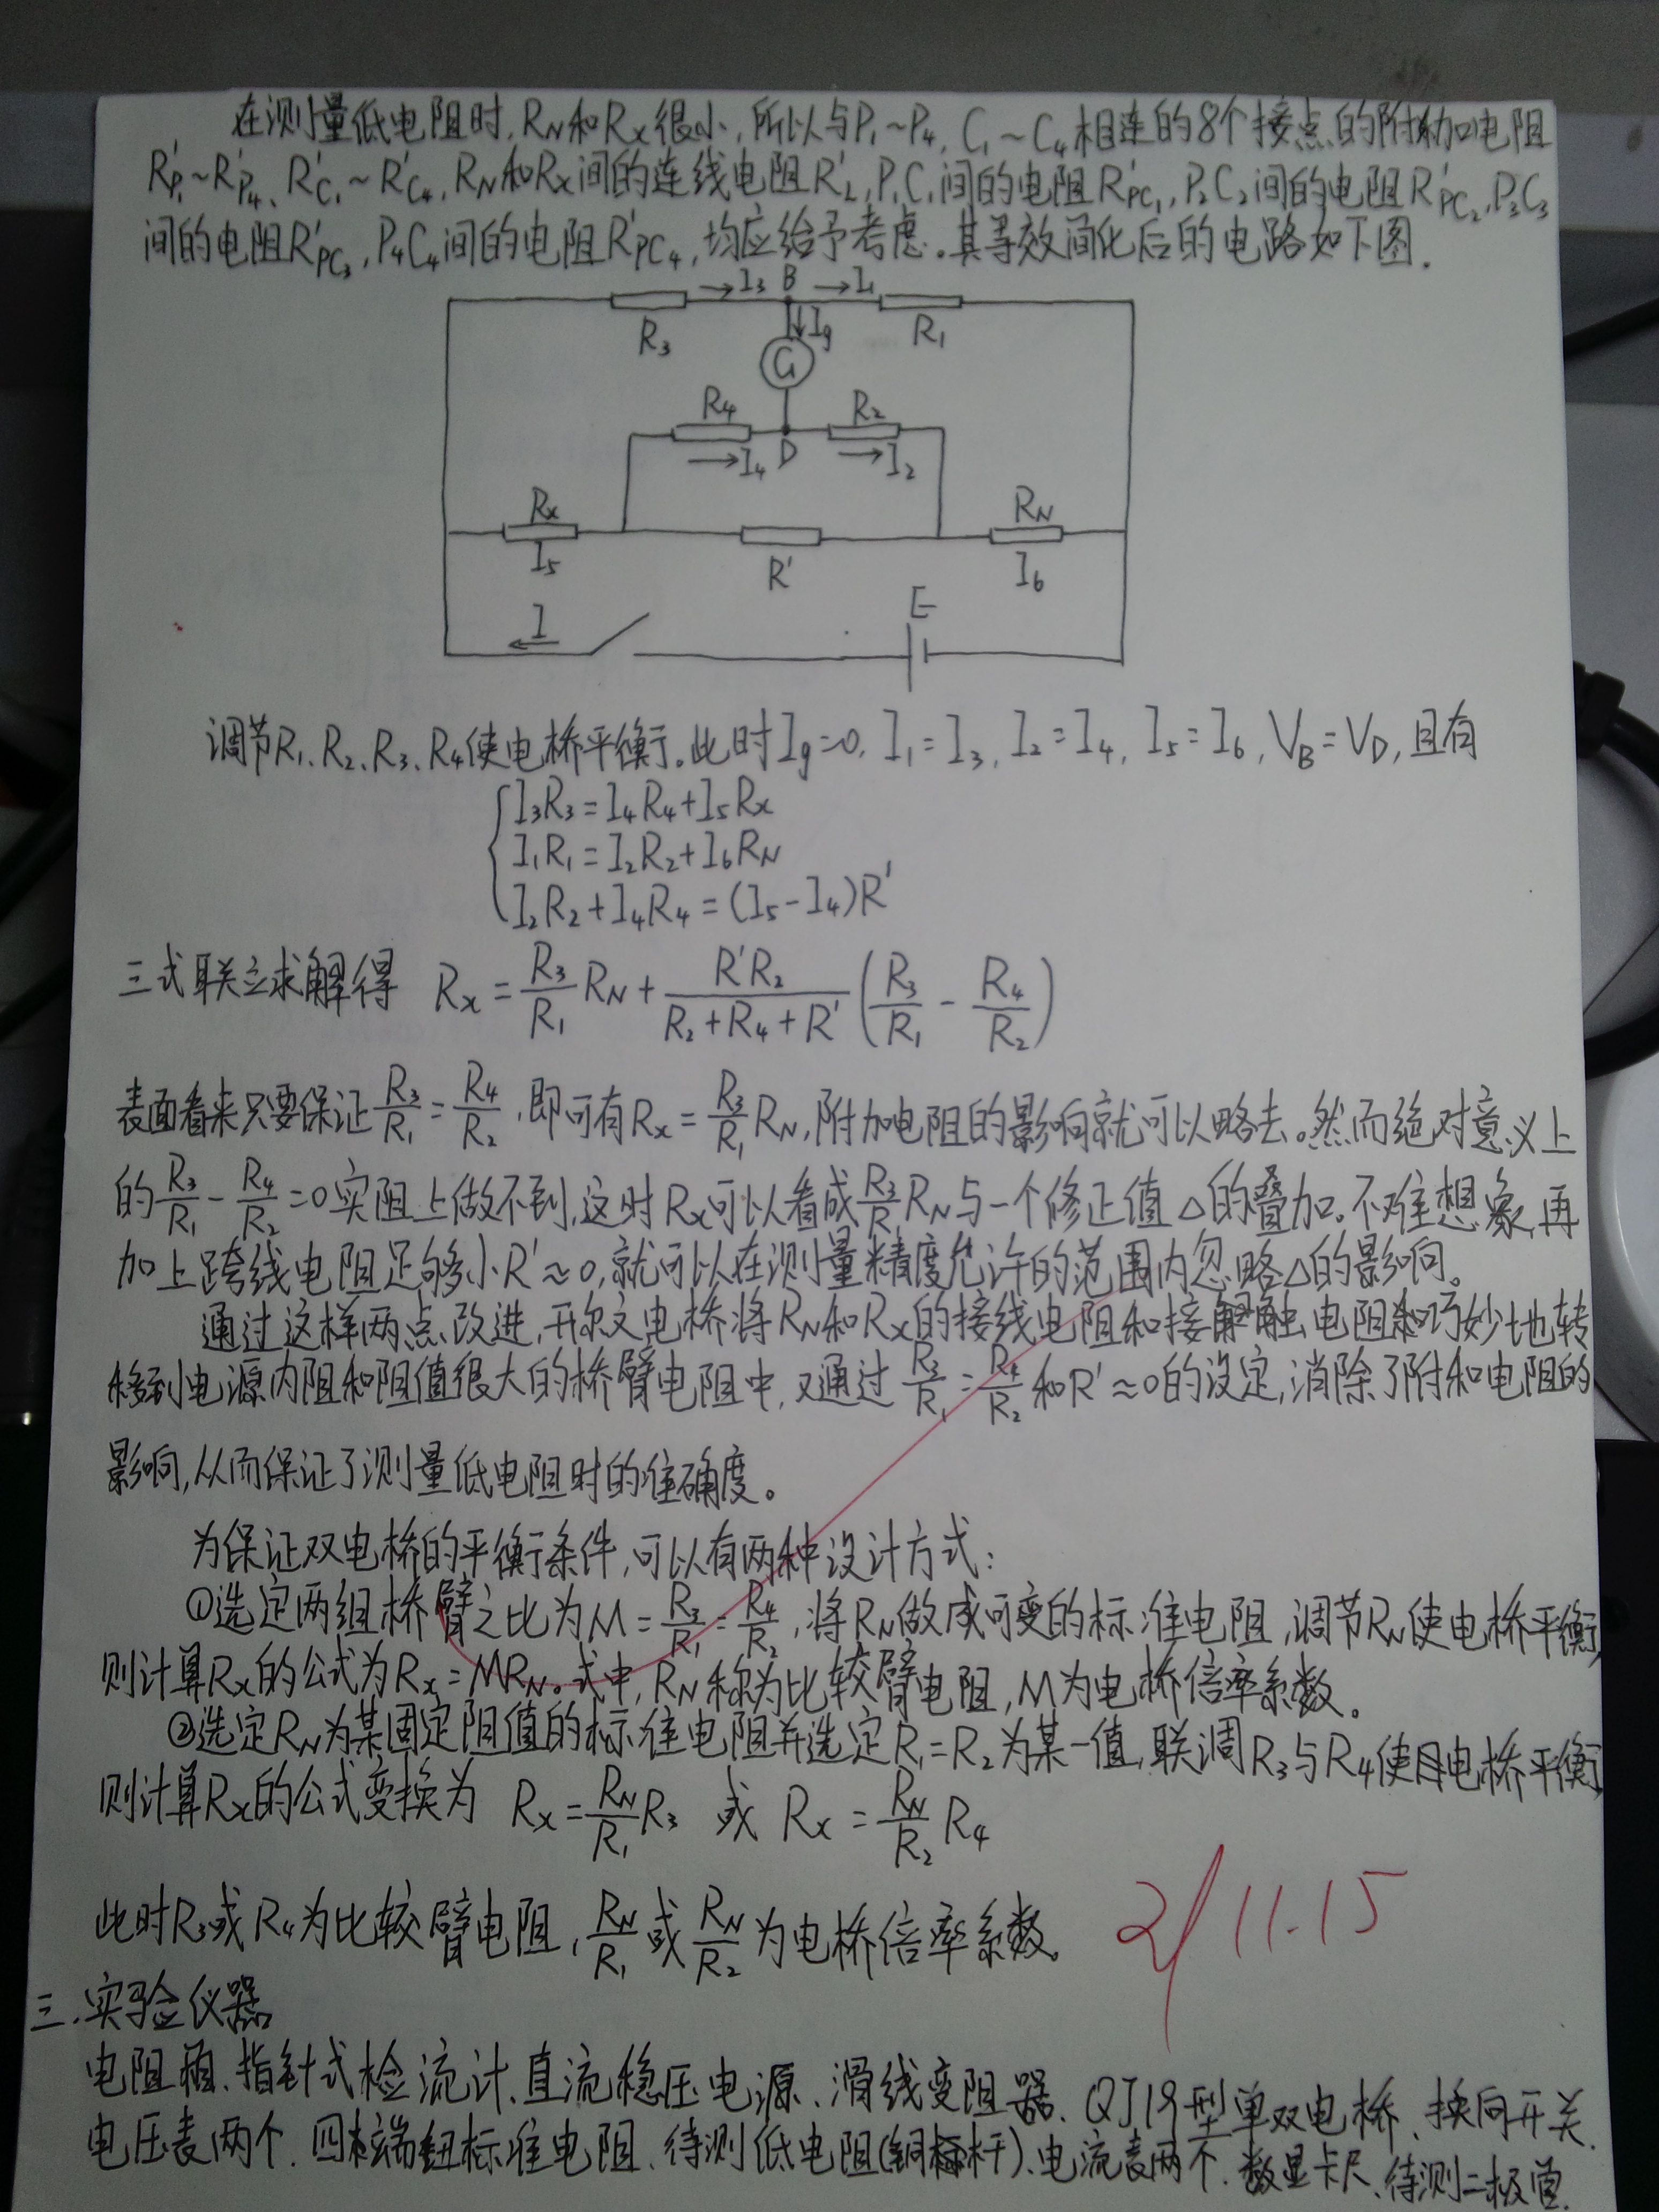 在测量低电阻时,RN和Rx很小,所以与P₁~P₄,C₁~C₄相连的8个接点的附加电阻
R'P₁~R'P₄、R'C₁~R'C₄,RN和Rx间的连线电阻R'L,P₁C₁间的电阻R'PC₁,P₂C₂间的电阻R'PC₂,P₃C₃
间的电阻R'PC₃,P₄C₄间的电阻R'PC₄,均应给予考虑。其等效简化后的电路如下图.
I₃ B I₁
R₃ Ig R₁
G
R₄ R₂
I₄ D I₂
Rx RN
I₅ R' I₆
I E
调节R₁、R₂、R₃、R₄使电桥平衡。此时Ig=0, I₁=I₃, I₂=I₄, I₅=I₆, VB=VD,且有
I₃R₃=I₄R₄+I₅Rx
I₁R₁=I₂R₂+I₆RN
I₂R₂+I₄R₄=(I₅-I₄)R'
三式联立求解得 Rx=R₃/R₁ RN+R'R₂/(R₂+R₄+R') (R₃/R₁ - R₄/R₂)
表面看来只要保证R₃/R₁=R₄/R₂,即可有Rx=R₃/R₁ RN,附加电阻的影响就可以略去。然而绝对意义上
的R₃/R₁-R₄/R₂=0实阻上做不到,这时Rx可以看成R₃/R₁ RN与一个修正值△的叠加。不难想象,再
加上跨线电阻足够小R'≈0,就可以在测量精度允许的范围内忽略△的影响。
通过这样两点改进,开尔文电桥将RN和Rx的接线电阻和接触电阻巧妙地转
移到电源内阻和阻值很大的桥臂电阻中,又通过R₃/R₁=R₄/R₂和R'≈0的设定,消除了附和电阻的
影响,从而保证了测量低电阻时的准确度。
为保证双电桥的平衡条件,可以有两种设计方式:
①选定两组桥臂之比为M=R₃/R₁=R₄/R₂,将RN做成可变的标准电阻,调节RN使电桥平衡,
则计算Rx的公式为Rx=MRN。式中,RN称为比较臂电阻,M为电桥倍率系数。
②选定RN为某固定阻值的标准电阻并选定R₁=R₂为某一值,联调R₃与R₄使电桥平衡,
则计算Rx的公式变换为 Rx=RN/R₁ R₃ 或 Rx=RN/R₂ R₄
此时R₃或R₄为比较臂电阻,RN/R₁或RN/R₂为电桥倍率系数。
11.15
三.实验仪器
电阻箱、指针式检流计、直流稳压电源、滑线变阻器、QJ19型单双电桥、换向开关.
电压表两个.四端钮标准电阻、待测低电阻(铜杆)、电流表两个.数显卡尺、待测二极管.